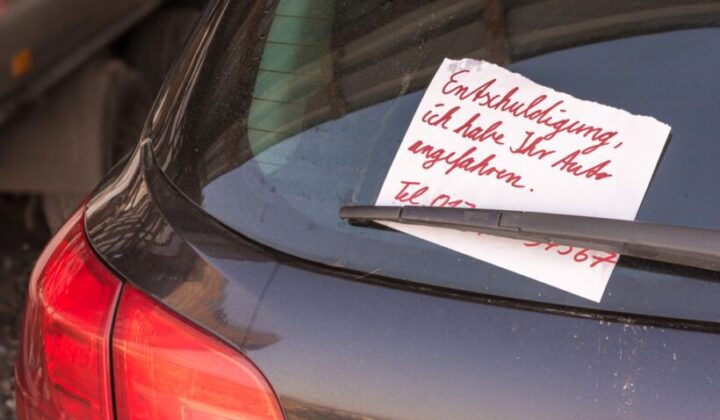 Entschuldigung,
ich habe Ihr Auto
angefahren.
Tel 017
34567